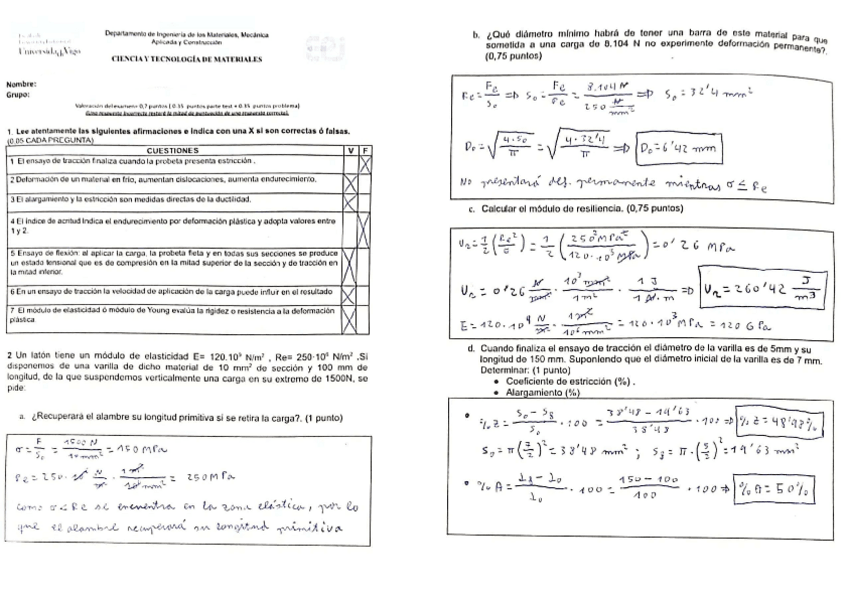 Universidad de Vigo
Departamento de Ingeniería de los Materiales, Mecánica
Aplicada y Construcción
CIENCIA Y TECNOLOGÍA DE MATERIALES
Nombre:
Grupo:
Valoración del examen: 0,7 puntos [ 0.35 puntos parte test + 0.35 puntos problema]
1. Lee atentamente las siguientes afirmaciones e indica con una X si son correctas ó falsas.
(0.05 CADA PREGUNTA)
CUESTIONES V F
1 El ensayo de tracción finaliza cuando la probeta presenta estricción .
2 Deformación de un material en frío, aumentan dislocaciones, aumenta endurecimiento.
3 El alargamiento y la estricción son medidas directas de la ductilidad.
4 El índice de acritud indica el endurecimiento por deformación plástica y adopta valores entre
1 y 2.
5 Ensayo de flexión: al aplicar la carga, la probeta flecta y en todas sus secciones se produce
un estado tensional que es de compresión en la mitad superior de la sección y de tracción en
la mitad inferior.
6 En un ensayo de tracción la velocidad de aplicación de la carga puede influir en el resultado
7 El módulo de elasticidad ó módulo de Young evalúa la rigidez o resistencia a la deformación
plástica
2 Un latón tiene un módulo de elasticidad E= 120.10⁹ N/m² , Re= 250·10⁶ N/m² .Si
disponemos de una varilla de dicho material de 10 mm² de sección y 100 mm de
longitud, de la que suspendemos verticalmente una carga en su extremo de 1500N, se
pide:
a. ¿Recuperará el alambre su longitud primitiva si se retira la carga?. (1 punto)
σ = F/S₀ = 1500 N/10 mm² = 150 MPa
= 250 MPa
como σ < Re se encuentra en la zona elástica, por lo
que el alambre recuperará su longitud primitiva
b. ¿Qué diámetro mínimo habrá de tener una barra de este material para que
sometida a una carga de 8.104 N no experimente deformación permanente?.
(0,75 puntos)
Fe/S₀ ⇒ S₀ = = 8.104 N / 250 N/mm² ⇒ S₀ = 32'4 mm²
D₀ = √(4·S₀/π) = √(4·32'4/π) ⇒ D₀ = 6'42 mm
No presentará def. permanente mientras σ ≤ Re
c. Calcular el módulo de resiliencia. (0,75 puntos)
= 0'26 MPa
= 0'26 N/mm² · 10⁶ mm²/1 m² · 1 J/1 N·m ⇒ = 260'42 J/m³
= 120·10³ MPa = 120 GPa
d. Cuando finaliza el ensayo de tracción el diámetro de la varilla es de 5mm y su
longitud de 150 mm. Suponiendo que el diámetro inicial de la varilla es de 7 mm.
Determinar: (1 punto)
• Coeficiente de estricción (%) .
• Alargamiento (%)
• % Z = · 100 = (38'48 − 19'63)/38'48 · 100 ⇒
S₀ = π(7/2)² = 38'48 mm² ; = π·(5/2)² = 19'63 mm²
• % A = · 100 = (150 − 100)/100 · 100 ⇒ % A = 50%